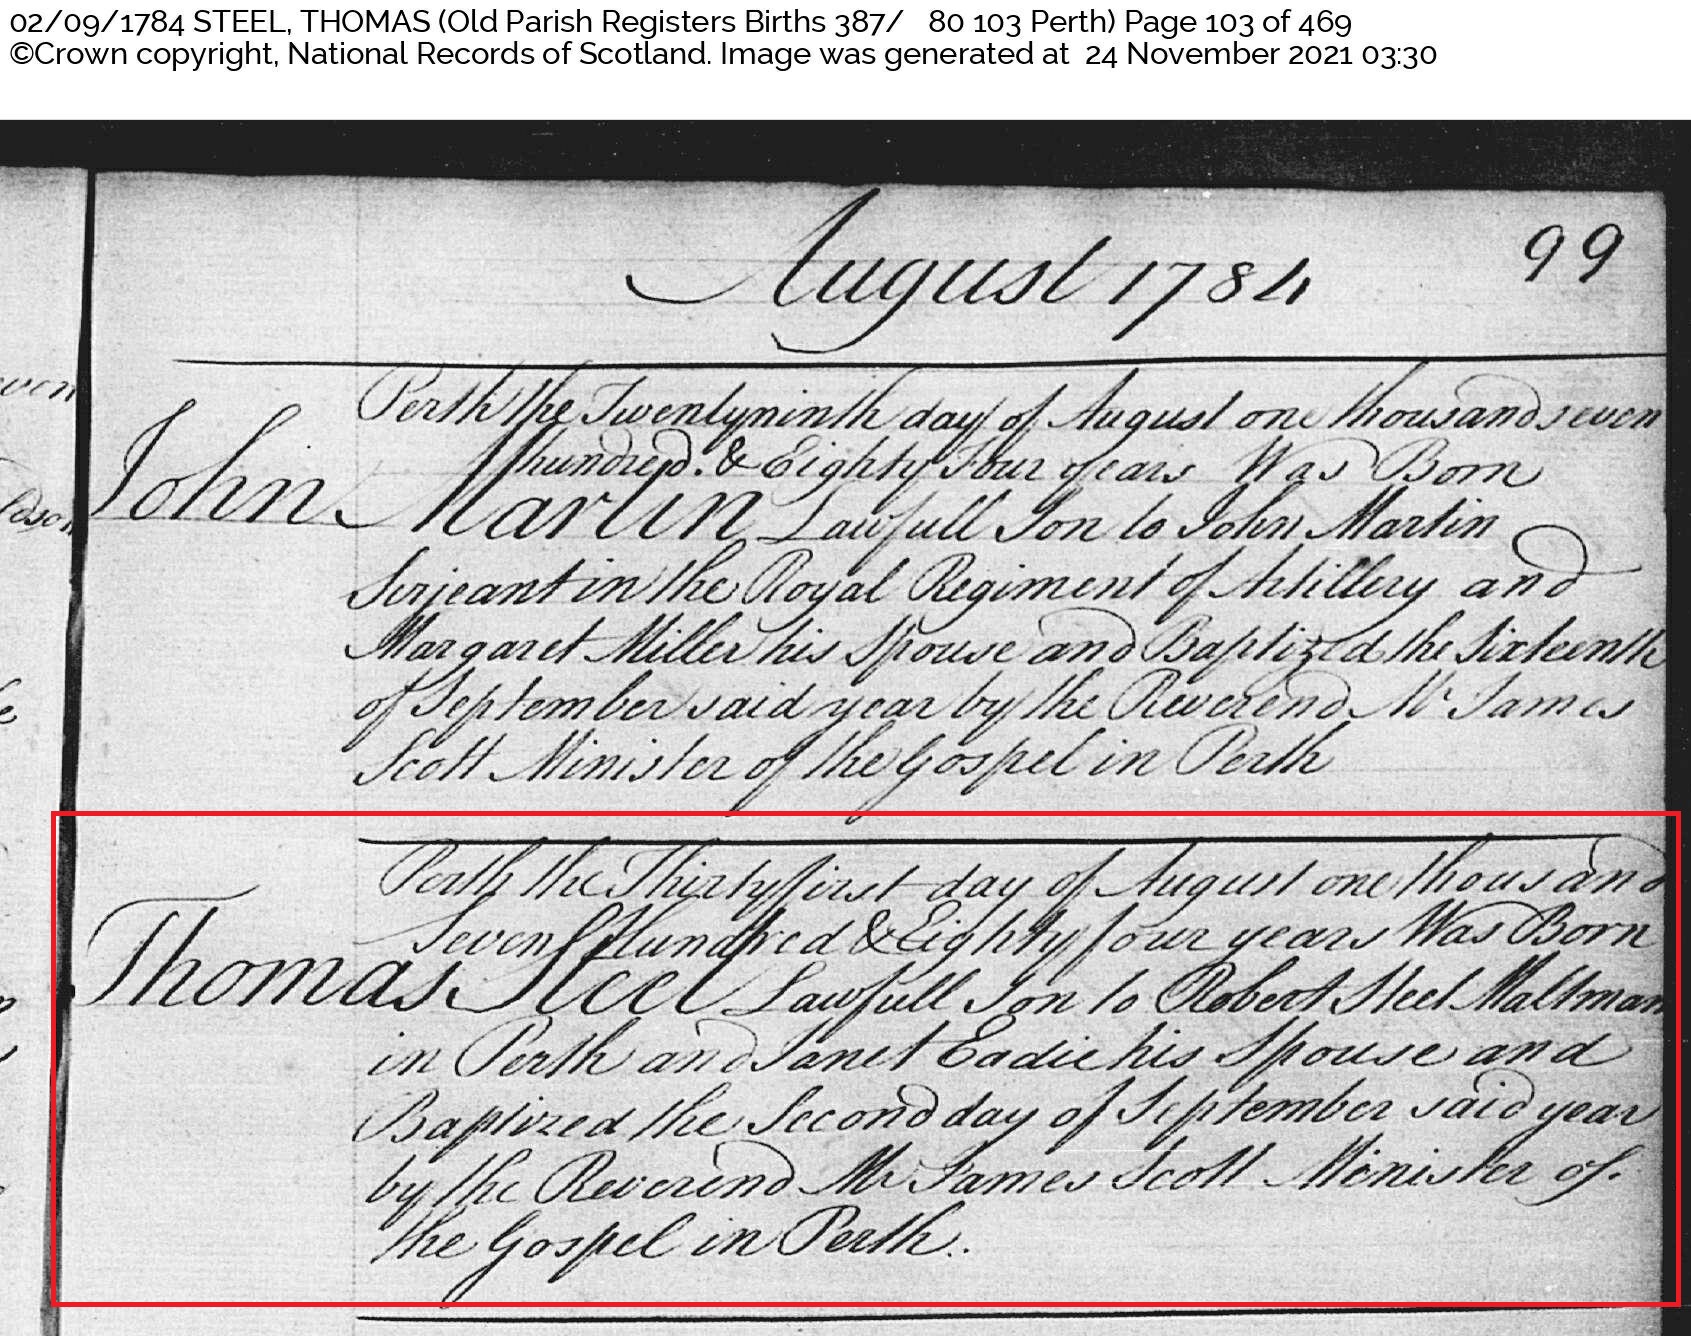 02/09/1784 STEEL, THOMAS (Old Parish Registers Births 387/ 80 103 Perth) Page 103 of 469
©Crown copyright, National Records of Scotland. Image was generated at 24 November 2021 03:30
August 1784
99
Perth the Twentyninth day of August one thousand seven
hundred. & Eighty Four years Was Born
John Martin Lawfull Son to John Martin
Serjeant in the Royal Regiment of Artillery and
Margaret Miller his Spouse and Baptized the Sixteenth
of September said year by the Reverend Mr James
Scott Minister of the Gospel in Perth
Perth the Thirtyfirst day of August one thousand
Seven Hundred & Eighty four years Was Born
Thomas Steel Lawfull Son to Robert Steel Maltman
in Perth and Janet Eadie his Spouse and
Baptized the Second day of September said year
by the Reverend Mr James Scott Minister of
the Gospel in Perth..